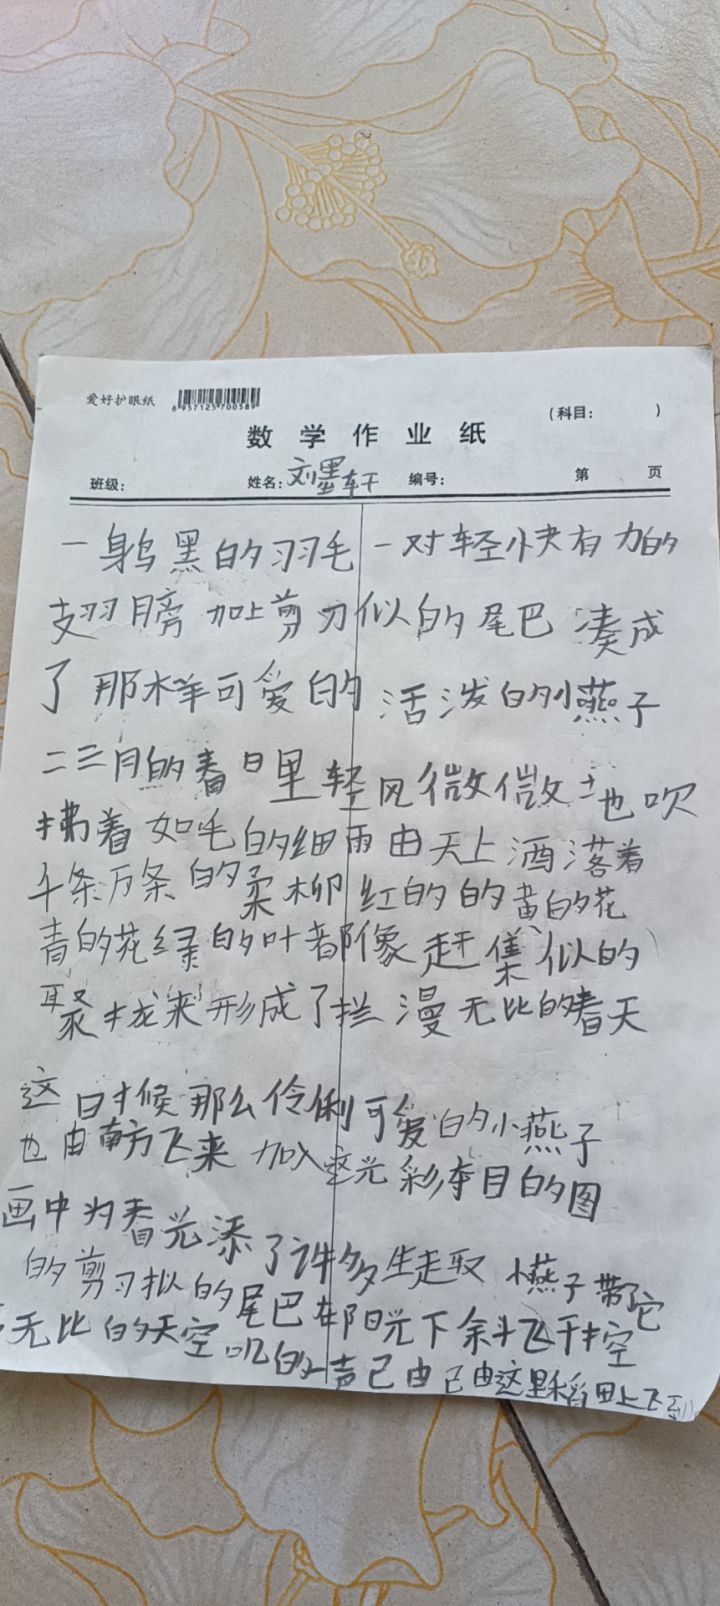 爱好护眼纸
6957125700589
(科目: )
数学作业纸
班级: 姓名: 刘墨轩 编号: 第 页
一身乌黑的羽毛一对轻快有力的
翅膀加上剪刀似的尾巴凑成
了那样可爱的活泼的小燕子
二三月的春日里轻风微微地吹
拂着如毛的细雨由天上洒落着
千条万条的柔柳红的的黄的花
青的花绿的叶都像赶集似的
聚拢来形成了拦漫无比的春天
这时候那么伶俐可爱的小燕子
也由南方飞来加入这光彩夺目的图
画中为春光添了许多生趣小燕子带了它
的剪刀拟的尾巴在阳光下斜飞于空
无比的天空叽的一声已由已由这里稻田上飞到